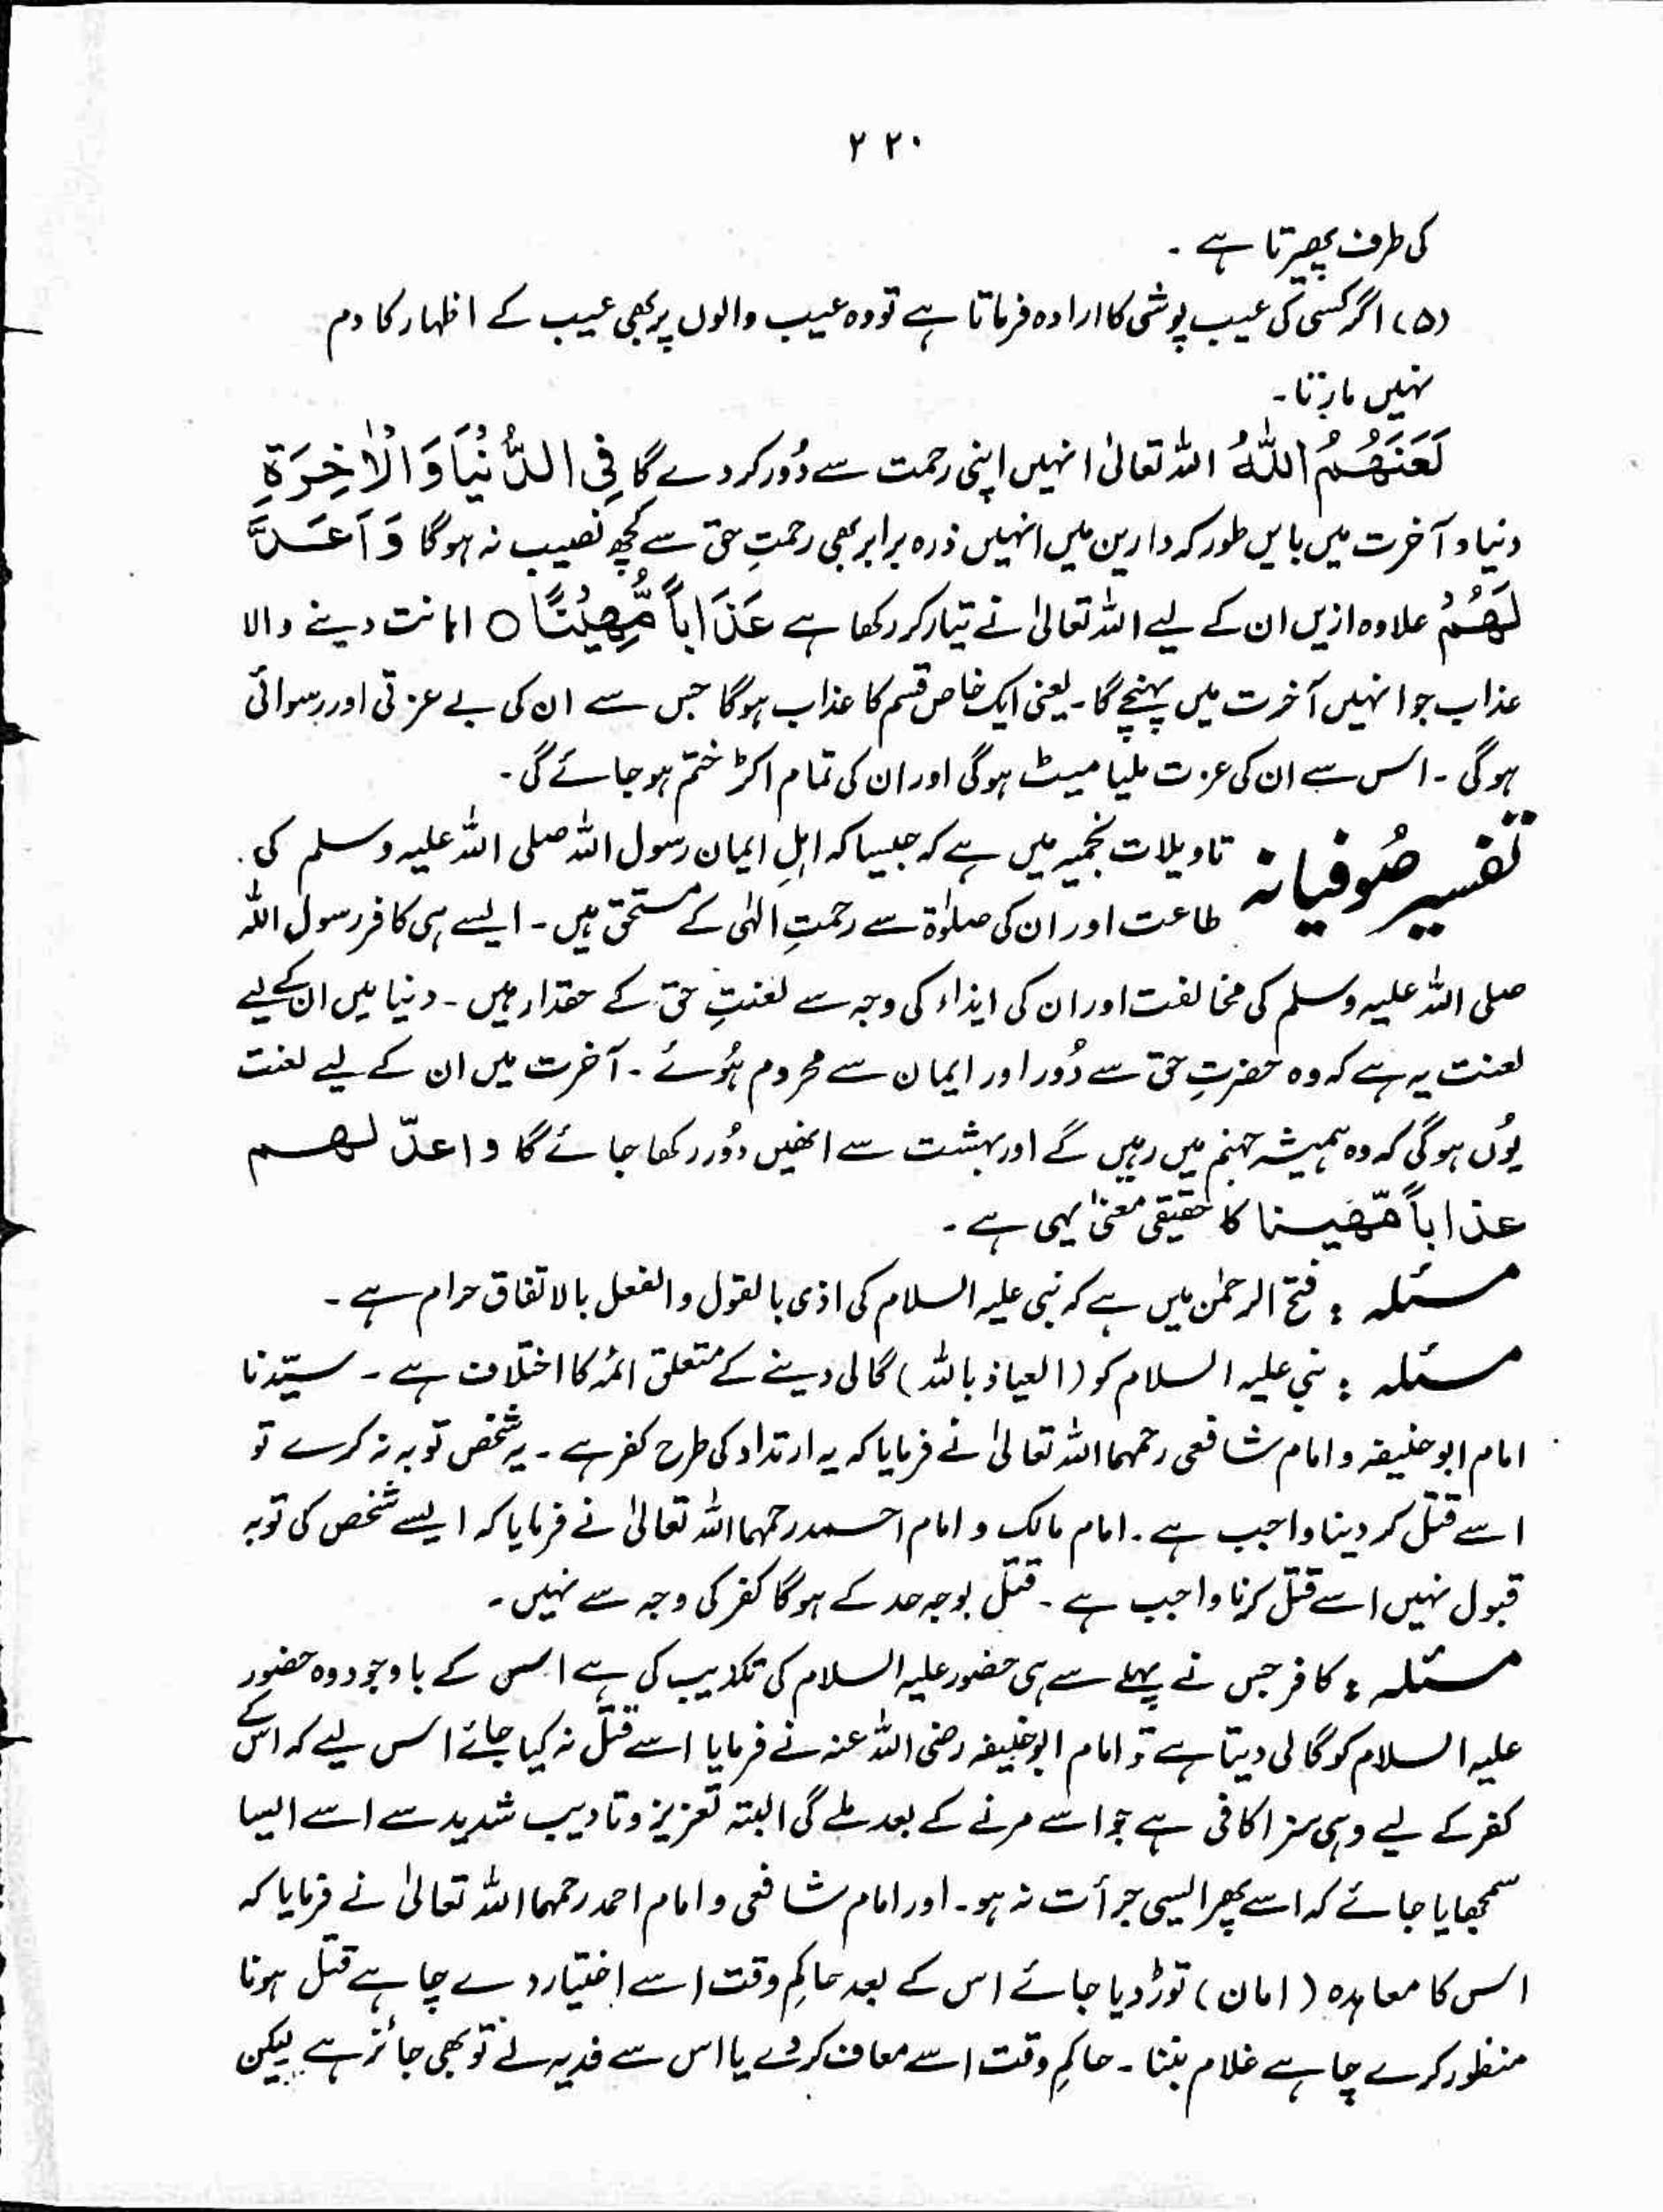 ۲۲۰
کی طرف پھیرتا ہے ۔
(۵) اگر کسی کی عیب پوشی کا ارادہ فرماتا ہے تو وہ عیب والوں پر بھی عیب کے اظہار کا دم
نہیں مارتا۔
لَعَنَهُمُ اللّٰهُ اللہ تعالیٰ انہیں اپنی رحمت سے دُور کر دے گا فِی الدُّنْیَا وَ الْاٰخِرَةِ
دنیا و آخرت میں بایں طور کہ دارین میں انہیں ذرہ برابر بھی رحمتِ حق سے کچھ نصیب نہ ہوگا وَ اَعَدَّ
لَهُمْ علاوہ ازیں ان کے لیے اللہ تعالیٰ نے تیار کر رکھا ہے عَذَاباً مُّهِیْنًا ○ اہانت دینے والا
عذاب جو انہیں آخرت میں پہنچے گا ۔ یعنی ایک خاص قسم کا عذاب ہوگا جس سے ان کی بے عزتی اور رسوائی
ہوگی ۔ اس سے ان کی عزت ملیا میٹ ہوگی اور ان کی تمام اکڑ ختم ہو جائے گی ۔
تفسیر صُوفیانہ تاویلات نجمیہ میں ہے کہ جیسا کہ اہلِ ایمان رسول اللہ صلی اللہ علیہ وسلم کی
طاعت اور ان کی صلوٰۃ سے رحمتِ الٰہی کے مستحق ہیں ۔ ایسے ہی کافر رسول اللہ
صلی اللہ علیہ وسلم کی مخالفت اور ان کی ایذاء کی وجہ سے لعنتِ حق کے حقدار ہیں ۔ دنیا میں ان کے لیے
لعنت یہ ہے کہ وہ حضرتِ حق سے دُور اور ایمان سے محروم ہُوئے ۔ آخرت میں ان کے لیے لعنت
یوُں ہوگی کہ وہ ہمیشہ جہنم میں رہیں گے اور بہشت سے انھیں دوُر رکھا جائے گا و اعدّ لھم
عذاباً مّھینا کا حقیقی معنیٰ یہی ہے ۔
مسئلہ : فتح الرحمٰن میں ہے کہ نبی علیہ السلام کی اذی بالقول والفعل بالاتفاق حرام ہے ۔
مسئلہ : نبی علیہ السلام کو (العیاذ باللہ) گالی دینے کے متعلق ائمہ کا اختلاف ہے ۔ سیّدنا
امام ابو حنیفہ و امام شافعی رحمہما اللہ تعالیٰ نے فرمایا کہ یہ ارتداد کی طرح کفر ہے ۔ یہ شخص توبہ نہ کرے تو
اسے قتل کر دینا واجب ہے ۔ امام مالک و امام احمد رحمہما اللہ تعالیٰ نے فرمایا کہ ایسے شخص کی توبہ
قبول نہیں اسے قتل کرنا واجب ہے ۔ قتل بوجہ حد کے ہوگا کفر کی وجہ سے نہیں ۔
مسئلہ : کافر جس نے پہلے سے ہی حضور علیہ السلام کی تکذیب کی ہے اس کے باوجود وہ حضور
علیہ السلام کو گالی دیتا ہے تو امام ابو حنیفہ رضی اللہ عنہ نے فرمایا اسے قتل نہ کیا جائے اس لیے کہ اس کے
کفر کے لیے وہی سزا کافی ہے جو اسے مرنے کے بعد ملے گی البتہ تعزیز و تادیب شدید سے اسے ایسا
سمجھایا جائے کہ اسے پھر ایسی جرأت نہ ہو ۔ اور امام شافعی و امام احمد رحمہما اللہ تعالیٰ نے فرمایا کہ
اس کا معاہدہ (امان) توڑ دیا جائے اس کے بعد حاکمِ وقت اسے اختیار دے چاہے قتل ہونا
منظور کرے چاہے غلام بننا ۔ حاکمِ وقت اسے معاف کر دے یا اس سے فدیہ لے تو بھی جائز ہے لیکن